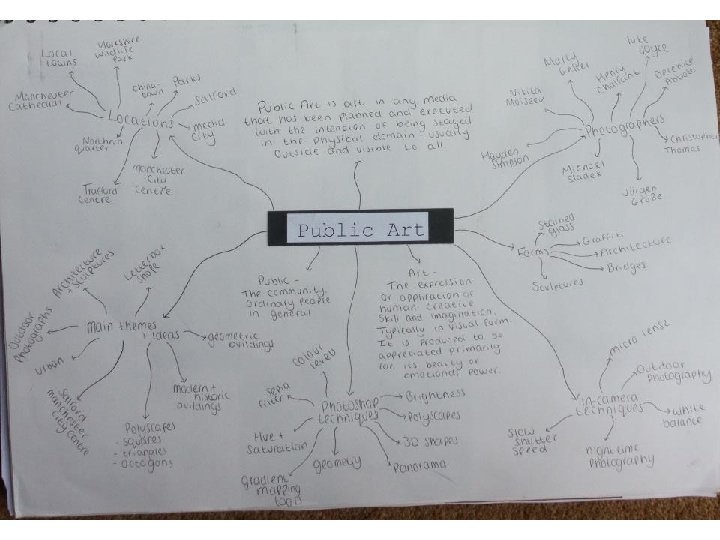 Local
towns
Yorkshire
Wildlife
Park
China-
town
Parks
Salford
Manchester
Cathedral
Locations
Media
City
Northern
Quarter
Manchester
City
Centre
Trafford
Centre
Public Art is art in any media
that has been planned and executed
with the intention of being staged
in the physical domain usually
outside and visible to all
Molly
Henry
Nikita
Photographers
Christopher
Thomas
Hayden
Simpson
Jürgen
Public Art
Stained
glass
Forms
Graffiti
Architecture
Bridges
Sculptures
Public -
The community.
Ordinary people
in general
Art -
The expression
or application of
human creative
skill and imagination.
Typically in visual form
It is produced to be
appreciated primarily
for its beauty or
emotional power.
Architecture
+ sculptures
Letterbox
shape
Photographs
Main themes
+ ideas
geometric
buildings
Urban
Salford
Manchester
City Centre
modern +
historic
buildings
Polyscapes
- squares
- triangles
- octogons
Colour
levels
Sepia
filter
Photoshop
techniques
Brightness
Polyscapes
3D shapes
Panorama
Geometry
Hue +
Saturation
Gradient
mapping
tool
micro lense
Outdoor
photography
In-camera
techniques
White
balance
Slow
Shutter
Speed
night time
photography